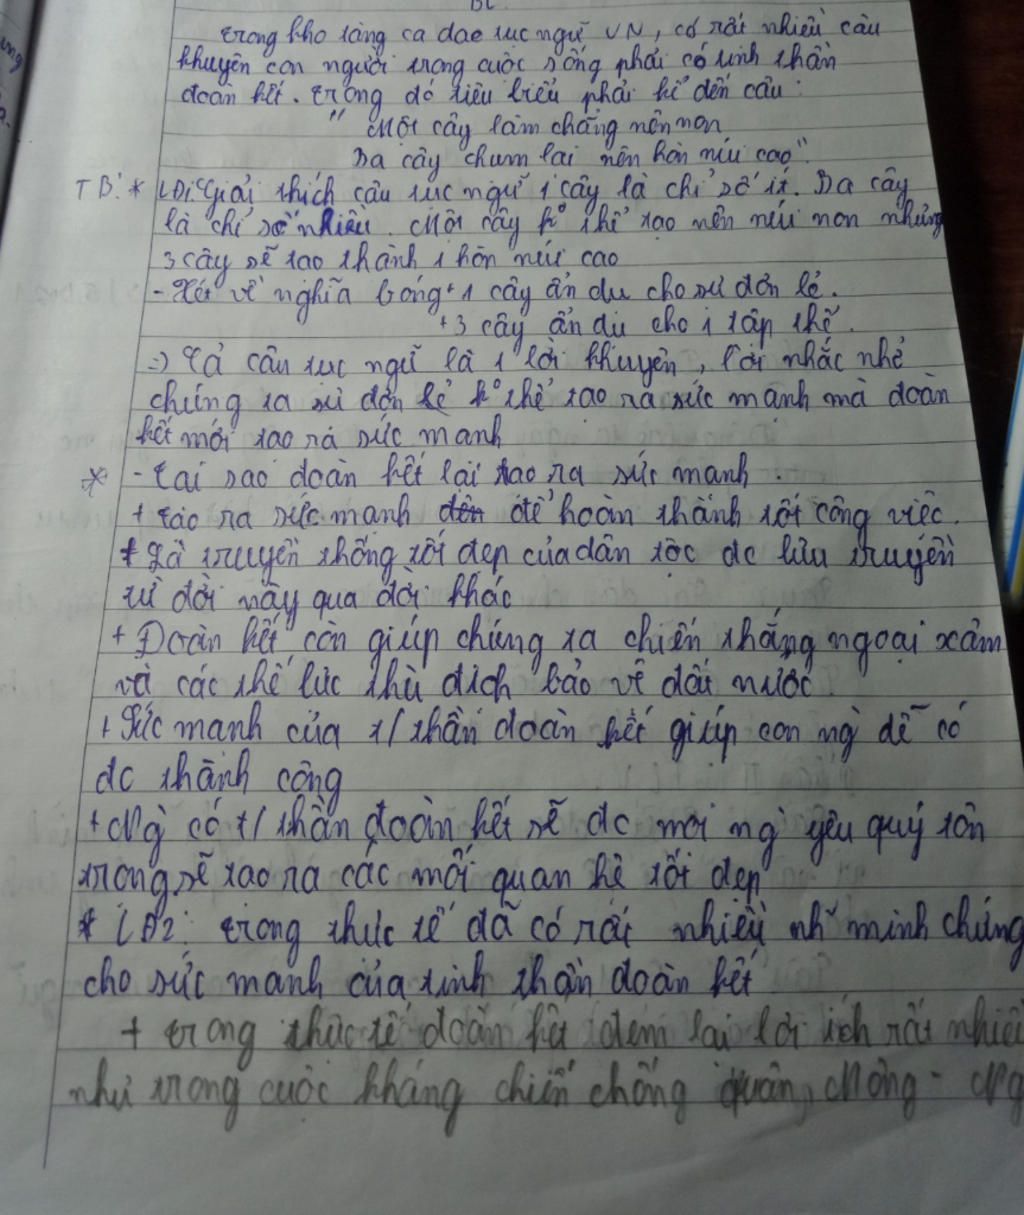 trong kho tàng ca dao tục ngữ VN, có rất nhiều câu
khuyên con người trong cuộc sống phải có tinh thần
đoàn kết. trong đó tiêu biểu phải kể đến câu:
"Một cây làm chẳng nên non
Ba cây chụm lại nên hòn núi cao".
TB: * LĐ1: Giải thích câu tục ngữ 1 cây là chỉ số ít. Ba cây
là chỉ số nhiều. Một cây ko thể tạo nên núi non nhưng
3 cây sẽ tạo thành 1 hòn núi cao
- Xét về nghĩa bóng + 1 cây ẩn dụ cho sự đơn lẻ.
+ 3 cây ẩn dụ cho 1 tập thể.
=> Cả câu tục ngữ là 1 lời khuyên, lời nhắc nhở
chúng ta sự đơn lẻ ko thể tạo ra sức mạnh mà đoàn
kết mới tạo ra sức mạnh
* - tại sao đoàn kết lại tạo ra sức mạnh.
+ tạo ra sức mạnh để hoàn thành tốt công việc.
+ Là truyền thống tốt đẹp của dân tộc dc lưu truyền
từ đời này qua đời khác
+ Đoàn kết còn giúp chúng ta chiến thắng ngoại xâm
và các thế lực thù địch bảo vệ đất nước
+ Sức mạnh của t/thần đoàn kết giúp con ng dễ có
dc thành công
+ Ng có t/thần đoàn kết sẽ dc mọi ng yêu quý tôn
trọng sẽ tạo ra các mối quan hệ tốt đẹp
* LĐ2: trong thực tế đã có rất nhiều minh chứng
cho sức mạnh của tinh thần đoàn kết
+ trong thực tế đoàn kết đem lại lợi ích rất nhiều
như trong cuộc kháng chiến chống quân Mông - Ng